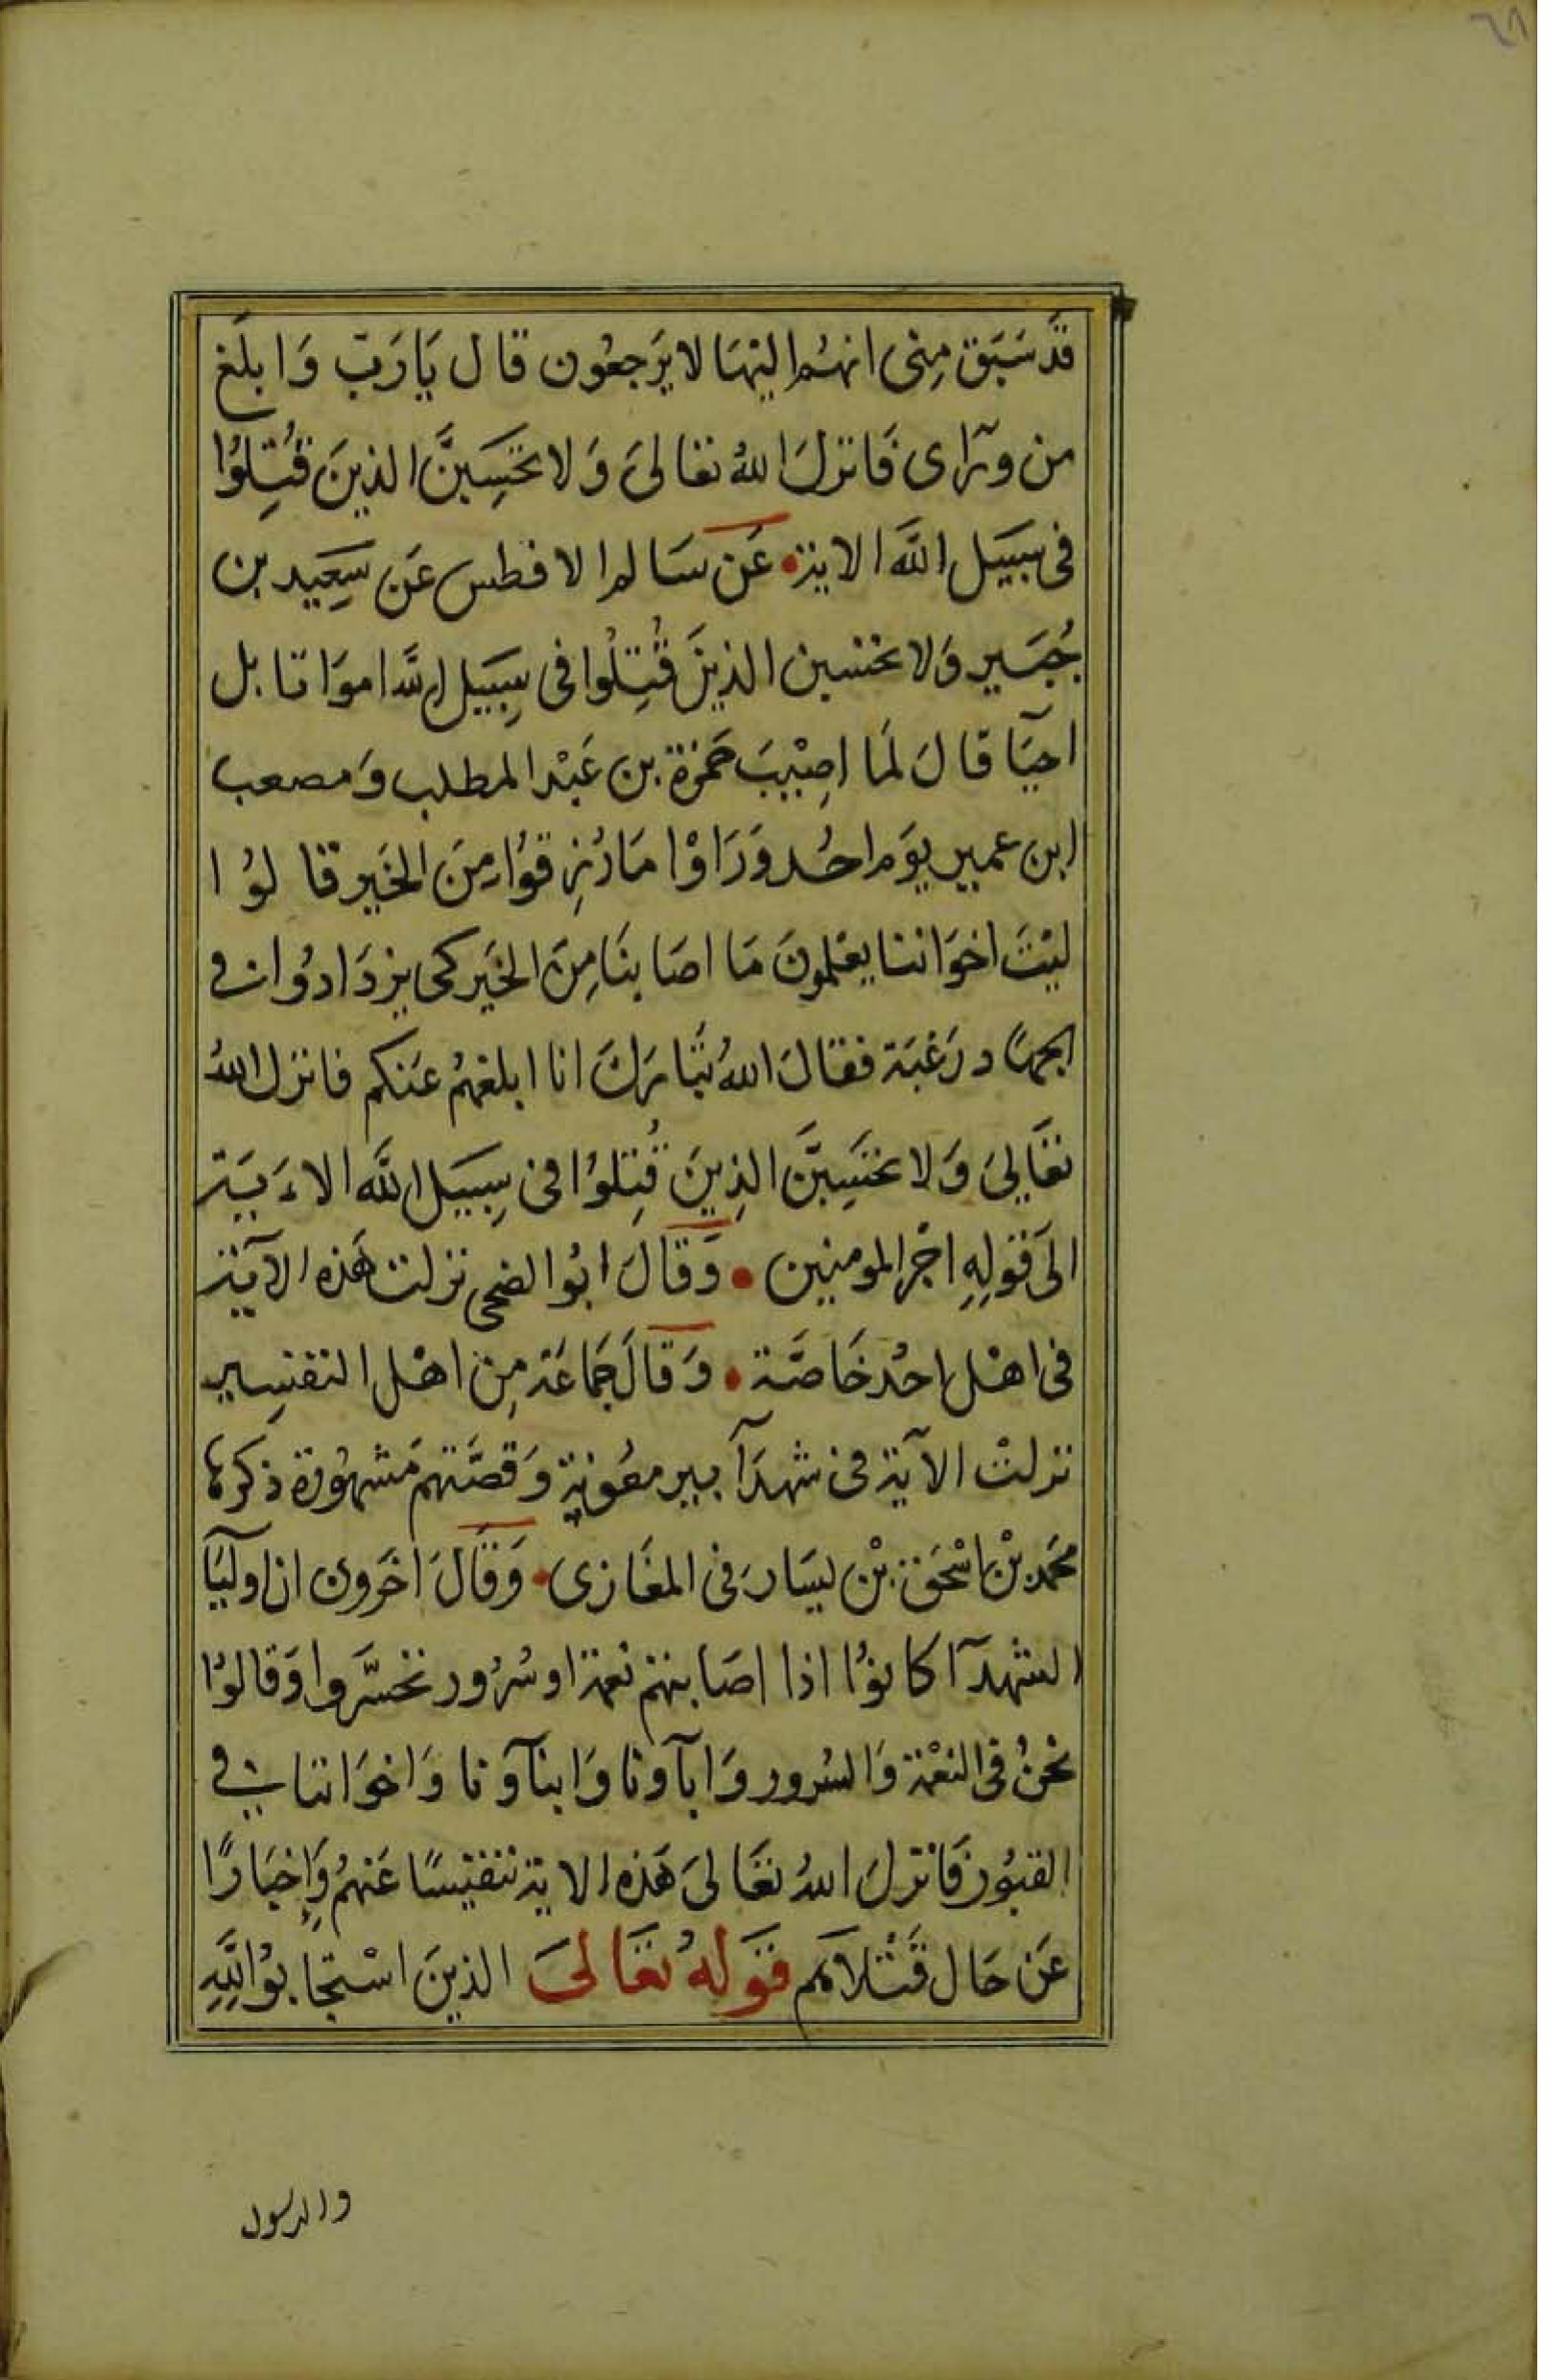 ٦٨
قَد سَبَق مِنى انهُم اليْهَا لا يَرجعُون قال يَا رَبّ وَابلَغ
من ورَآى فَانزلَ اللهُ تعَالىَ وَلا تحَسِبَنَّ الذينَ قُتِلوُا
فى سَبيَل اللَّه الاية عَن سَالم الافطس عَن سَعِيد بن
جُبَير وَلا تحسبن الذينَ قُتِلوُا فى سِبيَل اللَّه اموَاتا بل
احيَآ قالَ لمَا اصِيْبَ حَمزة بن عَبْد المطلب وَمصعب
ابن عمير يوَم احُد وَرَاوْا مَا رُزِقوُا مِنَ الخَير قالوُا
ليْتَ اخوَاننا يعْلمونَ مَا اصَابنَا مِنَ الخَير كى يزدَادوُا فى
الجهَاد رَغبَة فقالَ اللهُ تبَارَكَ انا ابلغهُم عَنكم فانزل اللهُ
تعَالىَ وَلا تحسَبَنَّ الذِينَ قُتِلوُا فى سِبيَل اللَّه الاءَيَة
الىَ قوَلِهِ اجْر المومنين وَقَالَ ابوُ الضحى نزلت هَذه الآيَة
فى اهْل احُد خَاصَّة وَقالَ جَمَاعَة مِن اهْل التفسِير
نزلتْ الآية فى شهدَآ بير معُونة وَقصَّتهم مَشهوُرة ذكرهَا
محَمد بْن اسْحَق بْن يسَار فى المغَازى وَقَالَ اخَرون ان اوليَآ
الشهدَآ كانوُا اذا اصَابتهم نعمة او سُرُور تحَسَّروا وَقالوُا
نحنُ فى النعْمَة وَالسُرور وَابآونا وَابنآونا وَاخوَاننا فى
القبُور فَانزلَ اللهُ تعَالىَ هَذه الاية تنفيسًا عَنهُم وَإخبَارًا
عَن حَال قَتْلاهَم قوَلهُ تعَالىَ الذينَ اسْتجَابوُا للَّهِ
والرسول